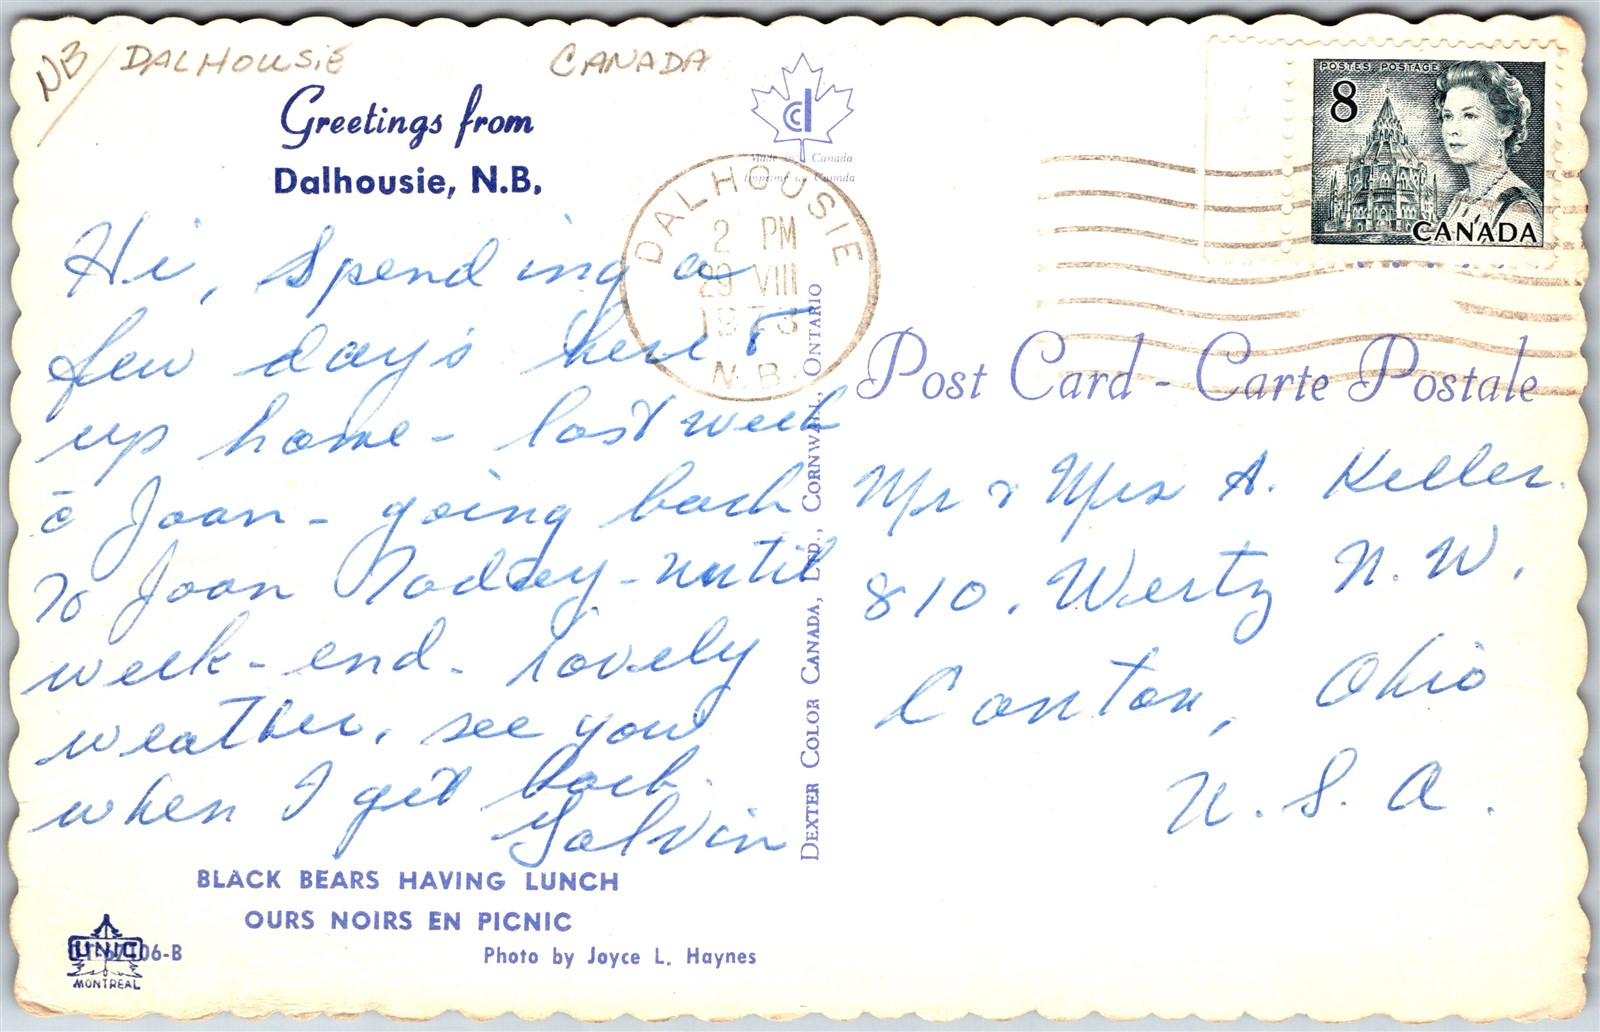 NB/DALHOUSIE CANADA
Greetings from
Dalhousie, N.B.
Hi, spending a
few days here
up home - last week
c̄ Joan - going back
to Joan Today - until
week-end. lovely
weather, see you
when I get back.
BLACK BEARS HAVING LUNCH
OURS NOIRS EN PICNIC
Photo by Joyce L. Haynes
UNIC
06-B
MONTREAL
DEXTER COLOR CANADA, LTD., CORNWALL, ONTARIO
Made in Canada
Imprimé au Canada
DALHOUSIE
2 PM
29 VIII
1973
N.B.
POSTES POSTAGE
8
CANADA
Post Card - Carte Postale
Mr & Mrs A. Keller
810, Wertz N.W.
Canton, Ohio
U.S.A.